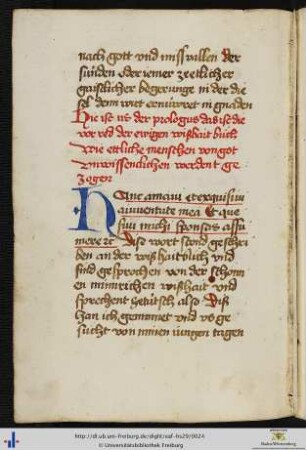 nach gott vnd missuallen der
sunden oder iemer zeitlicher
gaistlicher begerunge in der die
sel denn wirt ernúwret in gnaden
Hie ist vs der prologus das ist die
vor red der ewigen wißhait bůch
Wie ettliche menschen von got
vnwissenclichen werdent ge
zogen
Hanc amaui et exquisiui
a iuuentute mea Et que
siui michi sponsam assu
mere ꝛc Dise wort stond geschri
ben an der wißhait bůch vnd
sind gesprochen von der schonen
minnrichen wißhait vnd
sprechent ze tútsch also Diß
han ich geminnet vnd vs ge
sucht von minen iungen tagen
http://dl.ub.uni-freiburg.de/diglit/oaf-hs29/0024
© Universitätsbibliothek Freiburg
Baden-Württemberg